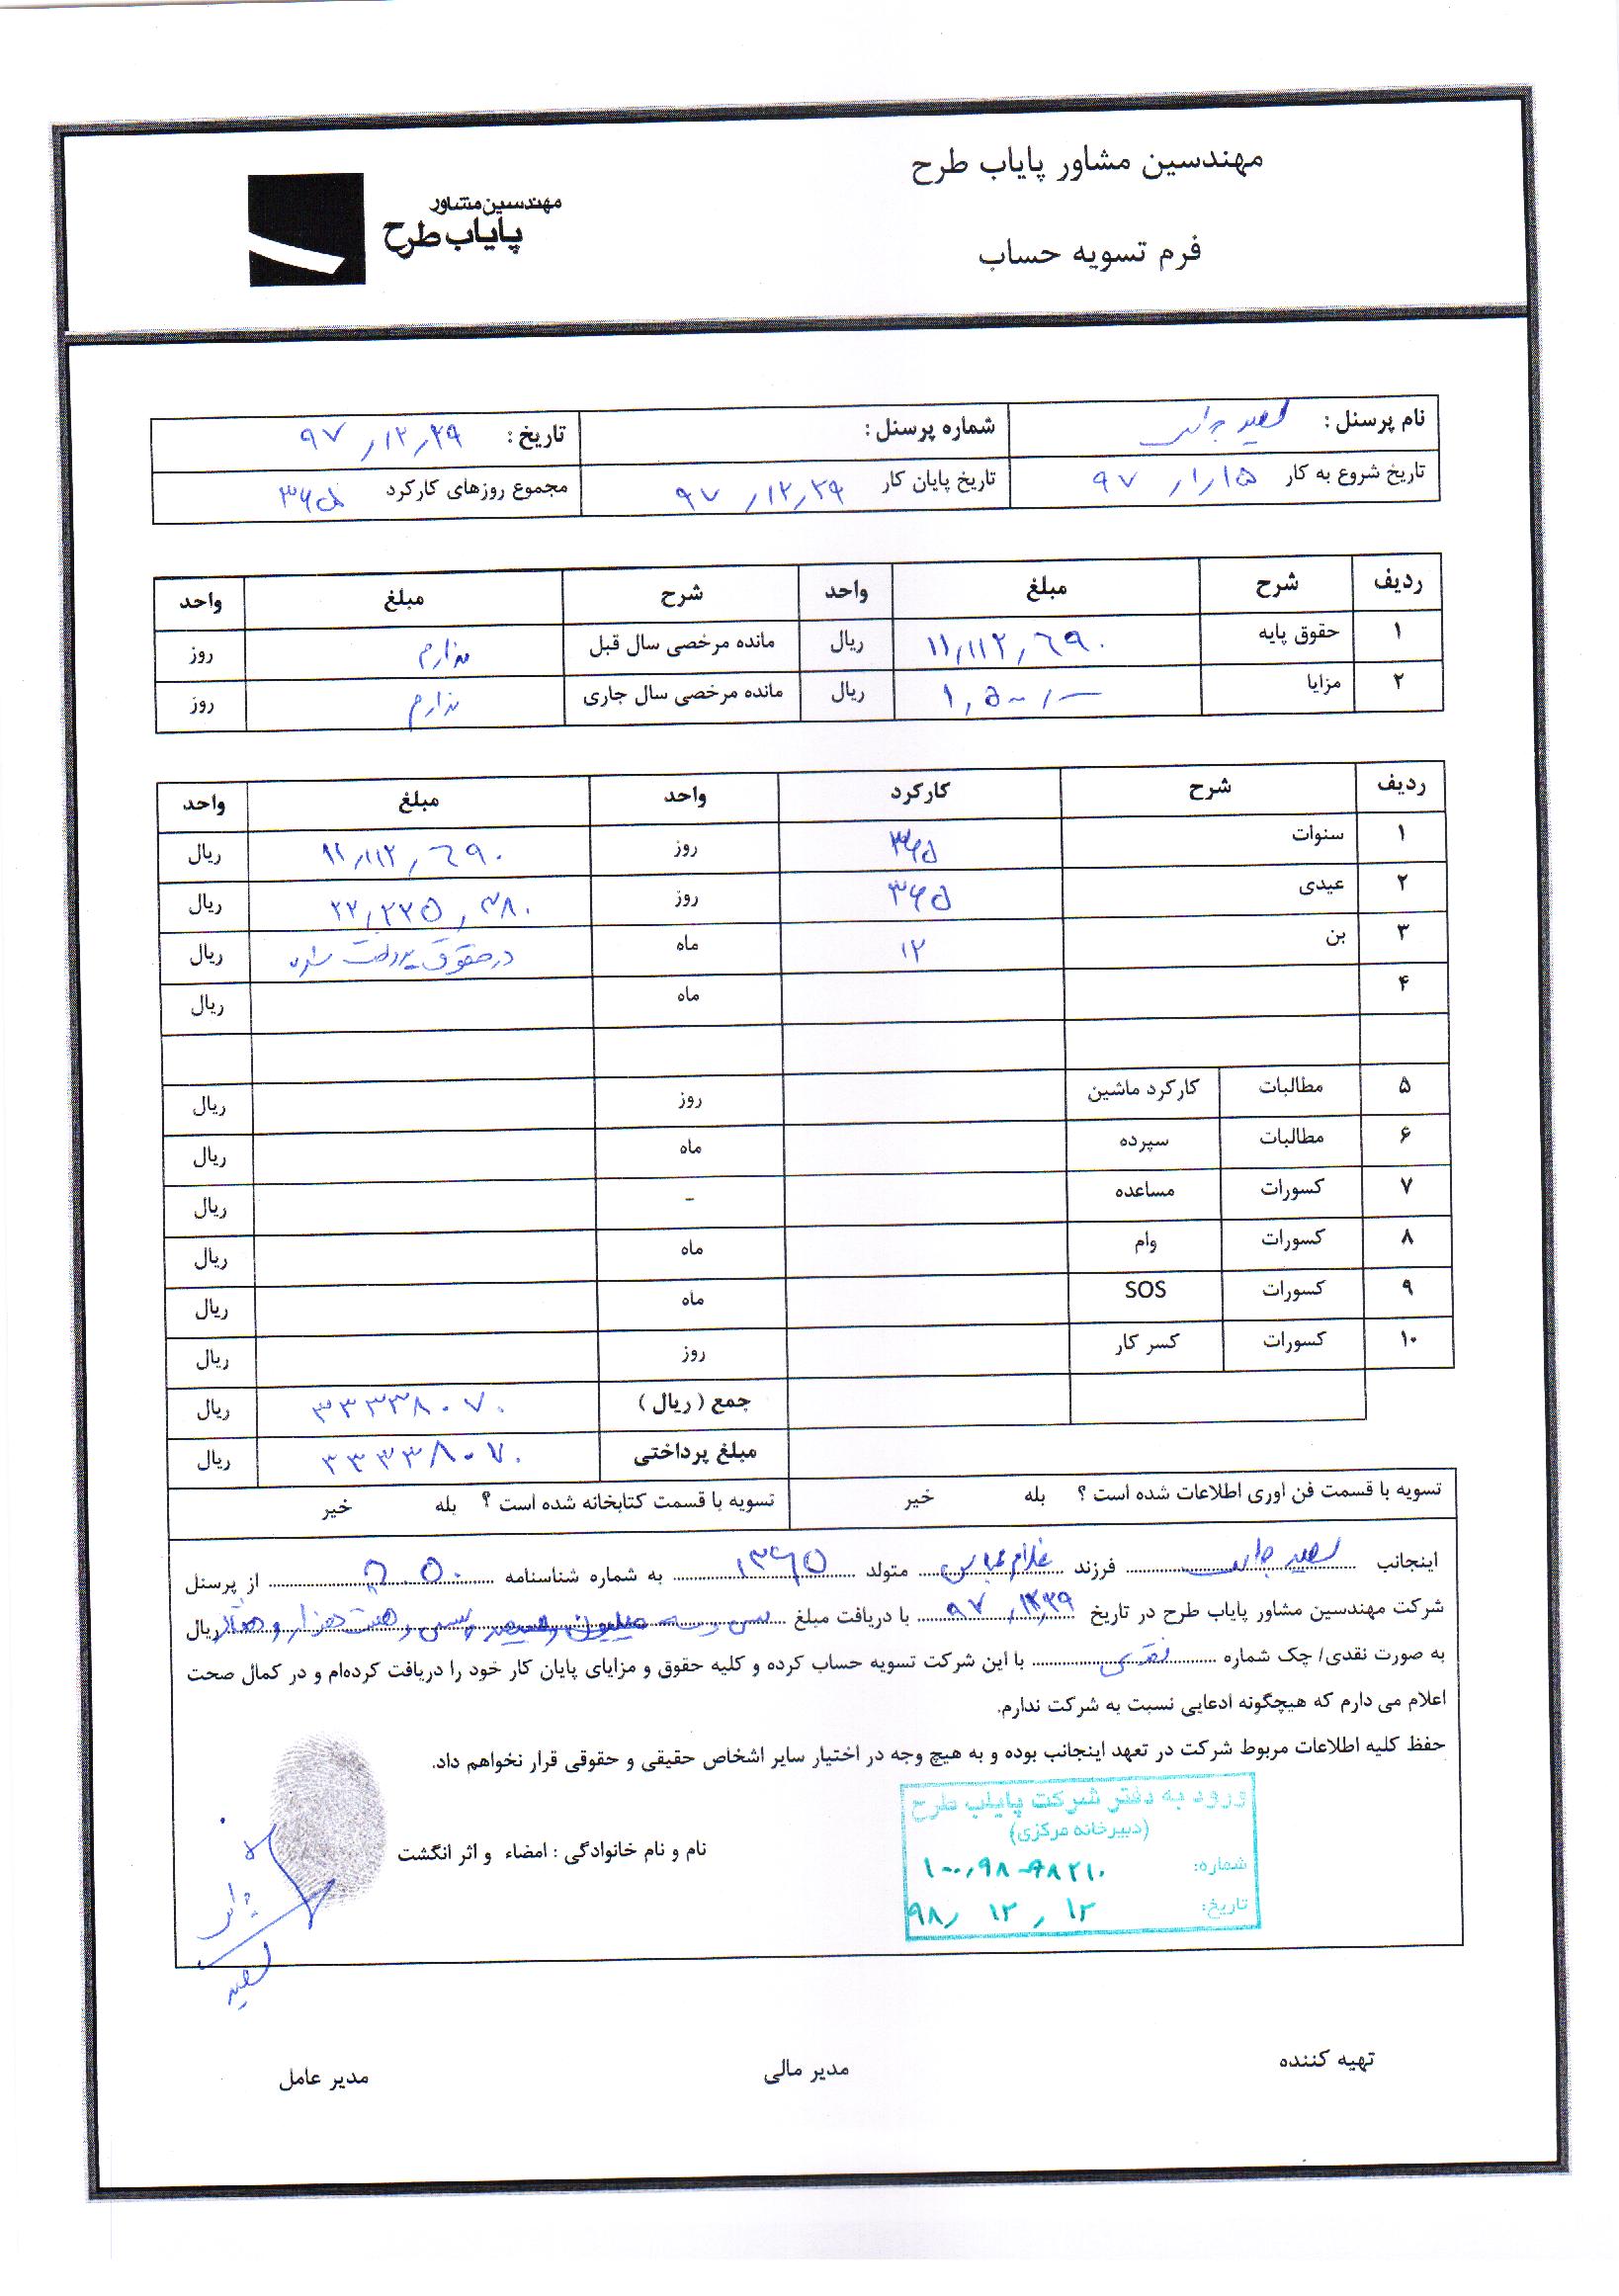 مهندسین مشاور پایاب طرح
مهندسین مشاور
پایاب طرح
فرم تسویه حساب
نام پرسنل : سعید شماره پرسنل : تاریخ : ۹۷,۱۲,۲۹
تاریخ شروع به کار ۹۷,۱,۱۵ تاریخ پایان کار ۹۷,۱۲,۲۹ مجموع روزهای کارکرد ۳۶۵
ردیف شرح مبلغ واحد شرح مبلغ واحد
۱ حقوق پایه ۱۱,۱۱۲,۶۹۰ ریال مانده مرخصی سال قبل ندارم روز
۲ مزایا ریال مانده مرخصی سال جاری ندارم روز
ردیف شرح کارکرد واحد مبلغ واحد
۱ سنوات ۳۶۵ روز ۱۱,۱۱۲,۶۹۰ ریال
۲ عیدی ۳۶۵ روز ۲۲,۲۲۵,۳۸۰ ریال
۳ بن ۱۲ ماه در حقوق پرداخت شده ریال
۴ ماه ریال
۵ مطالبات کارکرد ماشین روز ریال
۶ مطالبات سپرده ماه ریال
۷ کسورات مساعده - ریال
۸ کسورات وام ماه ریال
۹ کسورات SOS ماه ریال
۱۰ کسورات کسر کار روز ریال
جمع ( ریال ) ۳۳۳۳۸۰۷۰ ریال
مبلغ پرداختی ۳۳۳۳۸۰۷۰ ریال
تسویه با قسمت فن اوری اطلاعات شده است ؟ بله خیر تسویه با قسمت کتابخانه شده است ؟ بله خیر
اینجانب سعید فرزند غلامعباس متولد ۱۳۶۵ به شماره شناسنامه از پرسنل
شرکت مهندسین مشاور پایاب طرح در تاریخ ۹۷,۱۲,۲۹ با دریافت مبلغ سی و سه میلیون و سیصد و سی و هشت هزار و هفتاد ریال
به صورت نقدی/ چک شماره نقدی با این شرکت تسویه حساب کرده و کلیه حقوق و مزایای پایان کار خود را دریافت کرده‌ام و در کمال صحت
اعلام می دارم که هیچگونه ادعایی نسبت به شرکت ندارم.
حفظ کلیه اطلاعات مربوط شرکت در تعهد اینجانب بوده و به هیچ وجه در اختیار سایر اشخاص حقیقی و حقوقی قرار نخواهم داد.
ورود به دفتر شرکت پایاب طرح
(دبیرخانه مرکزی)
شماره: ۱۰۰,۹۸-۹۸۲۱۰
تاریخ: ۹۸, ۱۲, ۱۲
نام و نام خانوادگی : امضاء و اثر انگشت
سعید
تهیه کننده مدیر مالی مدیر عامل